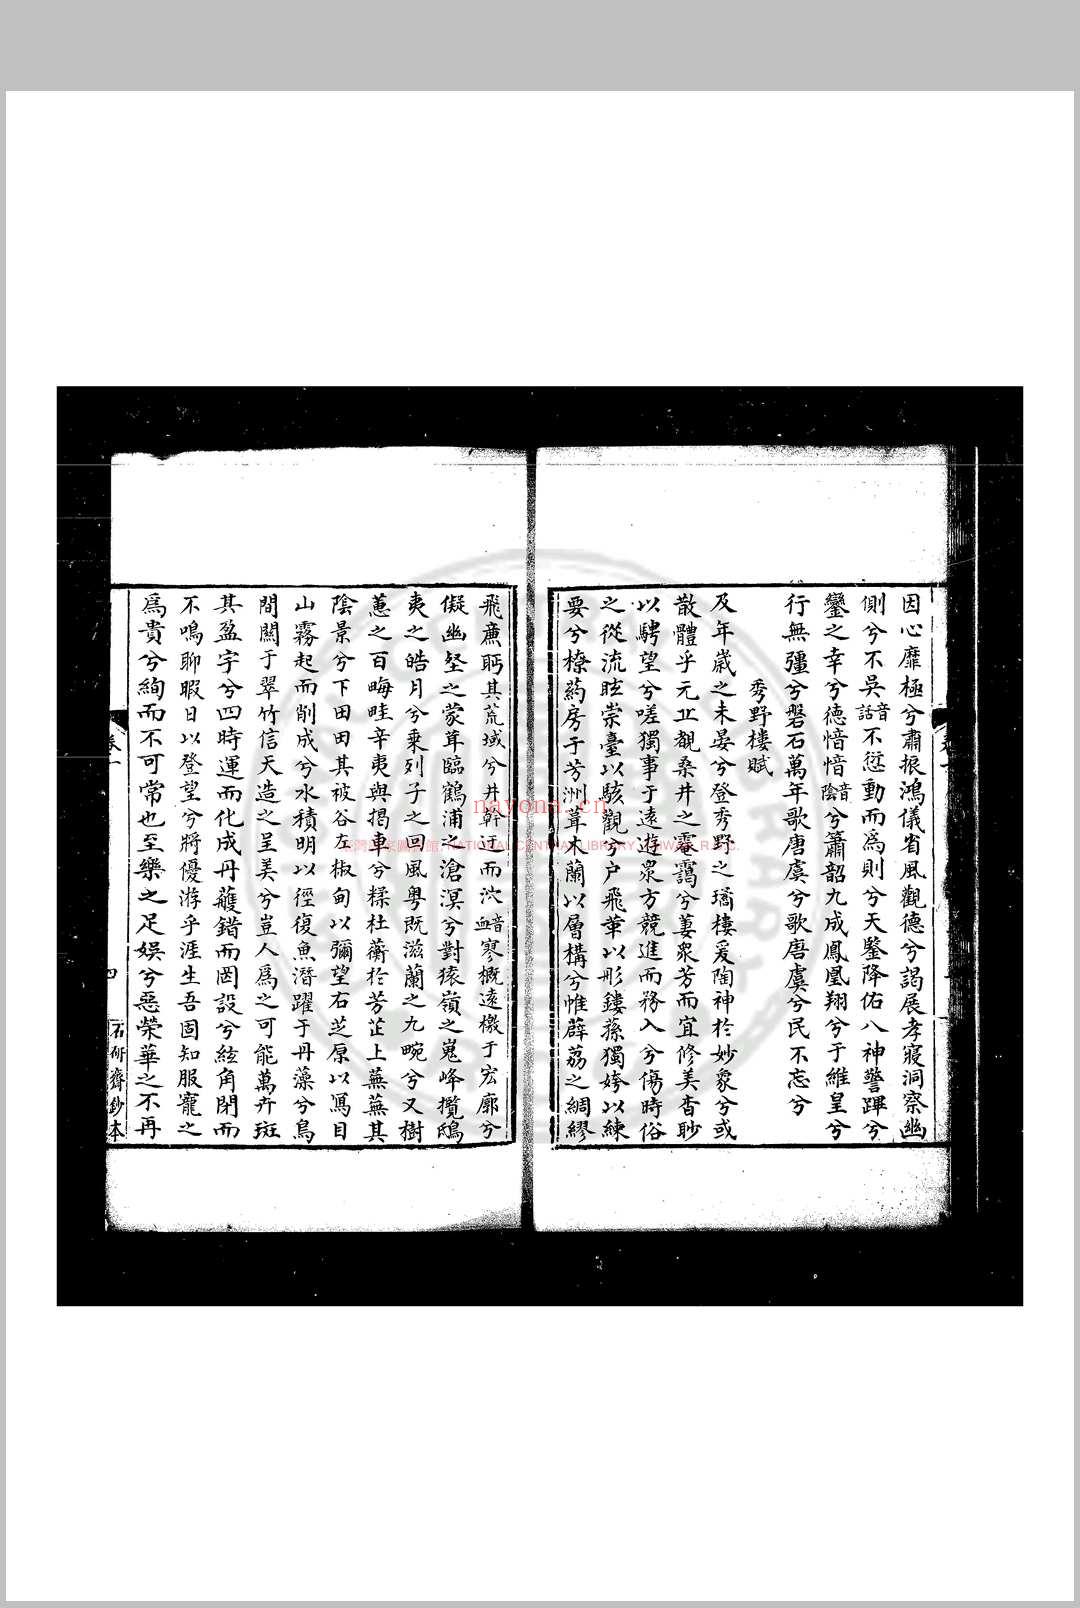 因心靡極兮肅振鴻儀省風觀德兮謁展孝寢洞察幽
側兮不吳音話不愆動而為則兮天鑒降佑八神警蹕兮
鑾之幸兮德愔愔音陰兮簫韶九成鳳凰翔兮于維皇兮
行無彊兮磐石萬年歌唐虞兮歌唐虞兮民不忘兮
秀野樓賦
及年歲之未晏兮登秀野之璚樓爰陶神於妙象兮或
散體乎元止覩桑井之靄兮羌衆芳而宜修美杳眇
以騁望兮嗟獨事于遠遊衆方競進而務入兮傷時俗
之從流眩崇臺以駭觀兮戶飛華以形鏤蓀獨姱以練
要兮橑葯房于芳洲葺木蘭以層構兮帷薜荔之綢繆
飛廉眄其荒域兮井幹迂而泬音血寥概遠檄于宏廓兮
儗幽壑之蒙茸臨鶴浦之滄溟兮對猿嶺之嵬峰攬鴟
夷之皓月兮乗列子之回風粤既滋蘭之九畹兮又樹
蕙之百晦畦辛夷與揭車兮糅杜蘅於芳芷上蕪蕪其
陰景兮下田田其被谷左椒甸以彌望右芝原以寫目
山霧起而削成兮水積明以徑復魚潛躍于丹藻兮鳥
間關于翠竹信天造之呈美兮豈人為之可能萬卉斑
其盈宇兮四時運而化成丹蘵錯而罔設兮絃角閉而
不鳴聊暇日以登望兮將優游乎涯生吾固知服寵之
為貴兮絢而不可常也至樂之足娛兮惡榮華之不再
卷一
四
石研齋鈔本
nayona.cn
NATIONAL CENTRAL LIBRARY, TAIWAN, R.O.C.